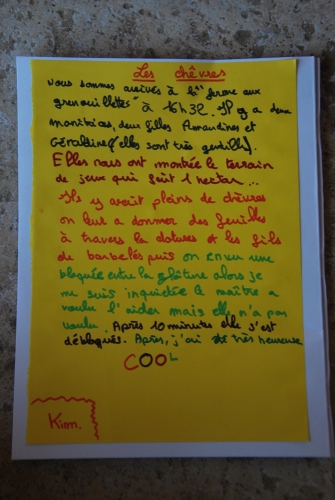 Les chêvres
nous sommes arrivés à la "ferme aux
grenouillettes" à 16h32. Il y a deux
monitrices, deux filles Amandines et
Géraldine (elles sont très gentille).
Elles nous ont montrée le terrain
de jeux qui fait 1 hectar...
Ils y avait pleins de chèvres
on leur a donner des feuilles
à travers la cloture et les fils
de barbelés puis on en vu une
bloquée entre la clôture alors je
me suis inquietée le maître a
voulu l'aider mais elle n'a pas
voulu. Après 10 minutes elle s'est
débloqués. Après, j'ai été très heureuse
COOL
Kim.